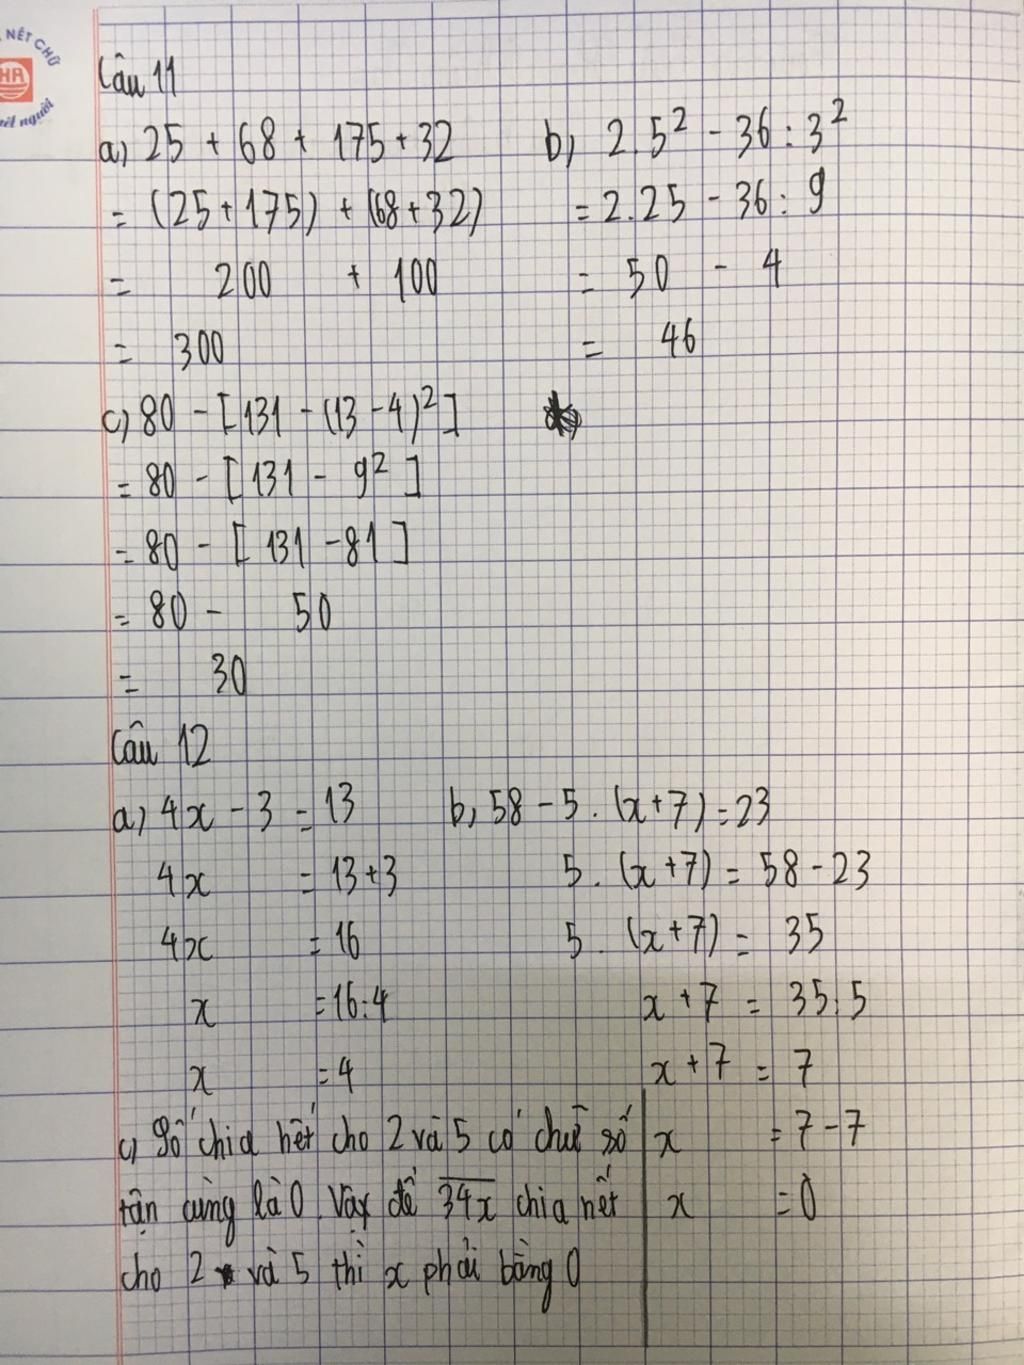 NÉT CHỮ
HA
nết người
Câu 11
a) 25 + 68 + 175 + 32
= (25 + 175) + (68 + 32)
= 200 + 100
= 300
b) 2.5² - 36 : 3²
= 2.25 - 36 : 9
= 50 - 4
= 46
c) 80 - [131 - (13 - 4)²]
= 80 - [131 - 9²]
= 80 - [131 - 81]
= 80 - 50
= 30
Câu 12
a) 4x - 3 = 13
4x = 13 + 3
4x = 16
x = 16:4
x = 4
b) 58 - 5. (x + 7) = 23
5. (x + 7) = 58 - 23
5. (x + 7) = 35
x + 7 = 35:5
x + 7 = 7
x = 7 - 7
x = 0
c) Số chia hết cho 2 và 5 có chữ số
tận cùng là 0. Vậy để 3̅4̅x̅ chia hết
cho 2 và 5 thì x phải bằng 0